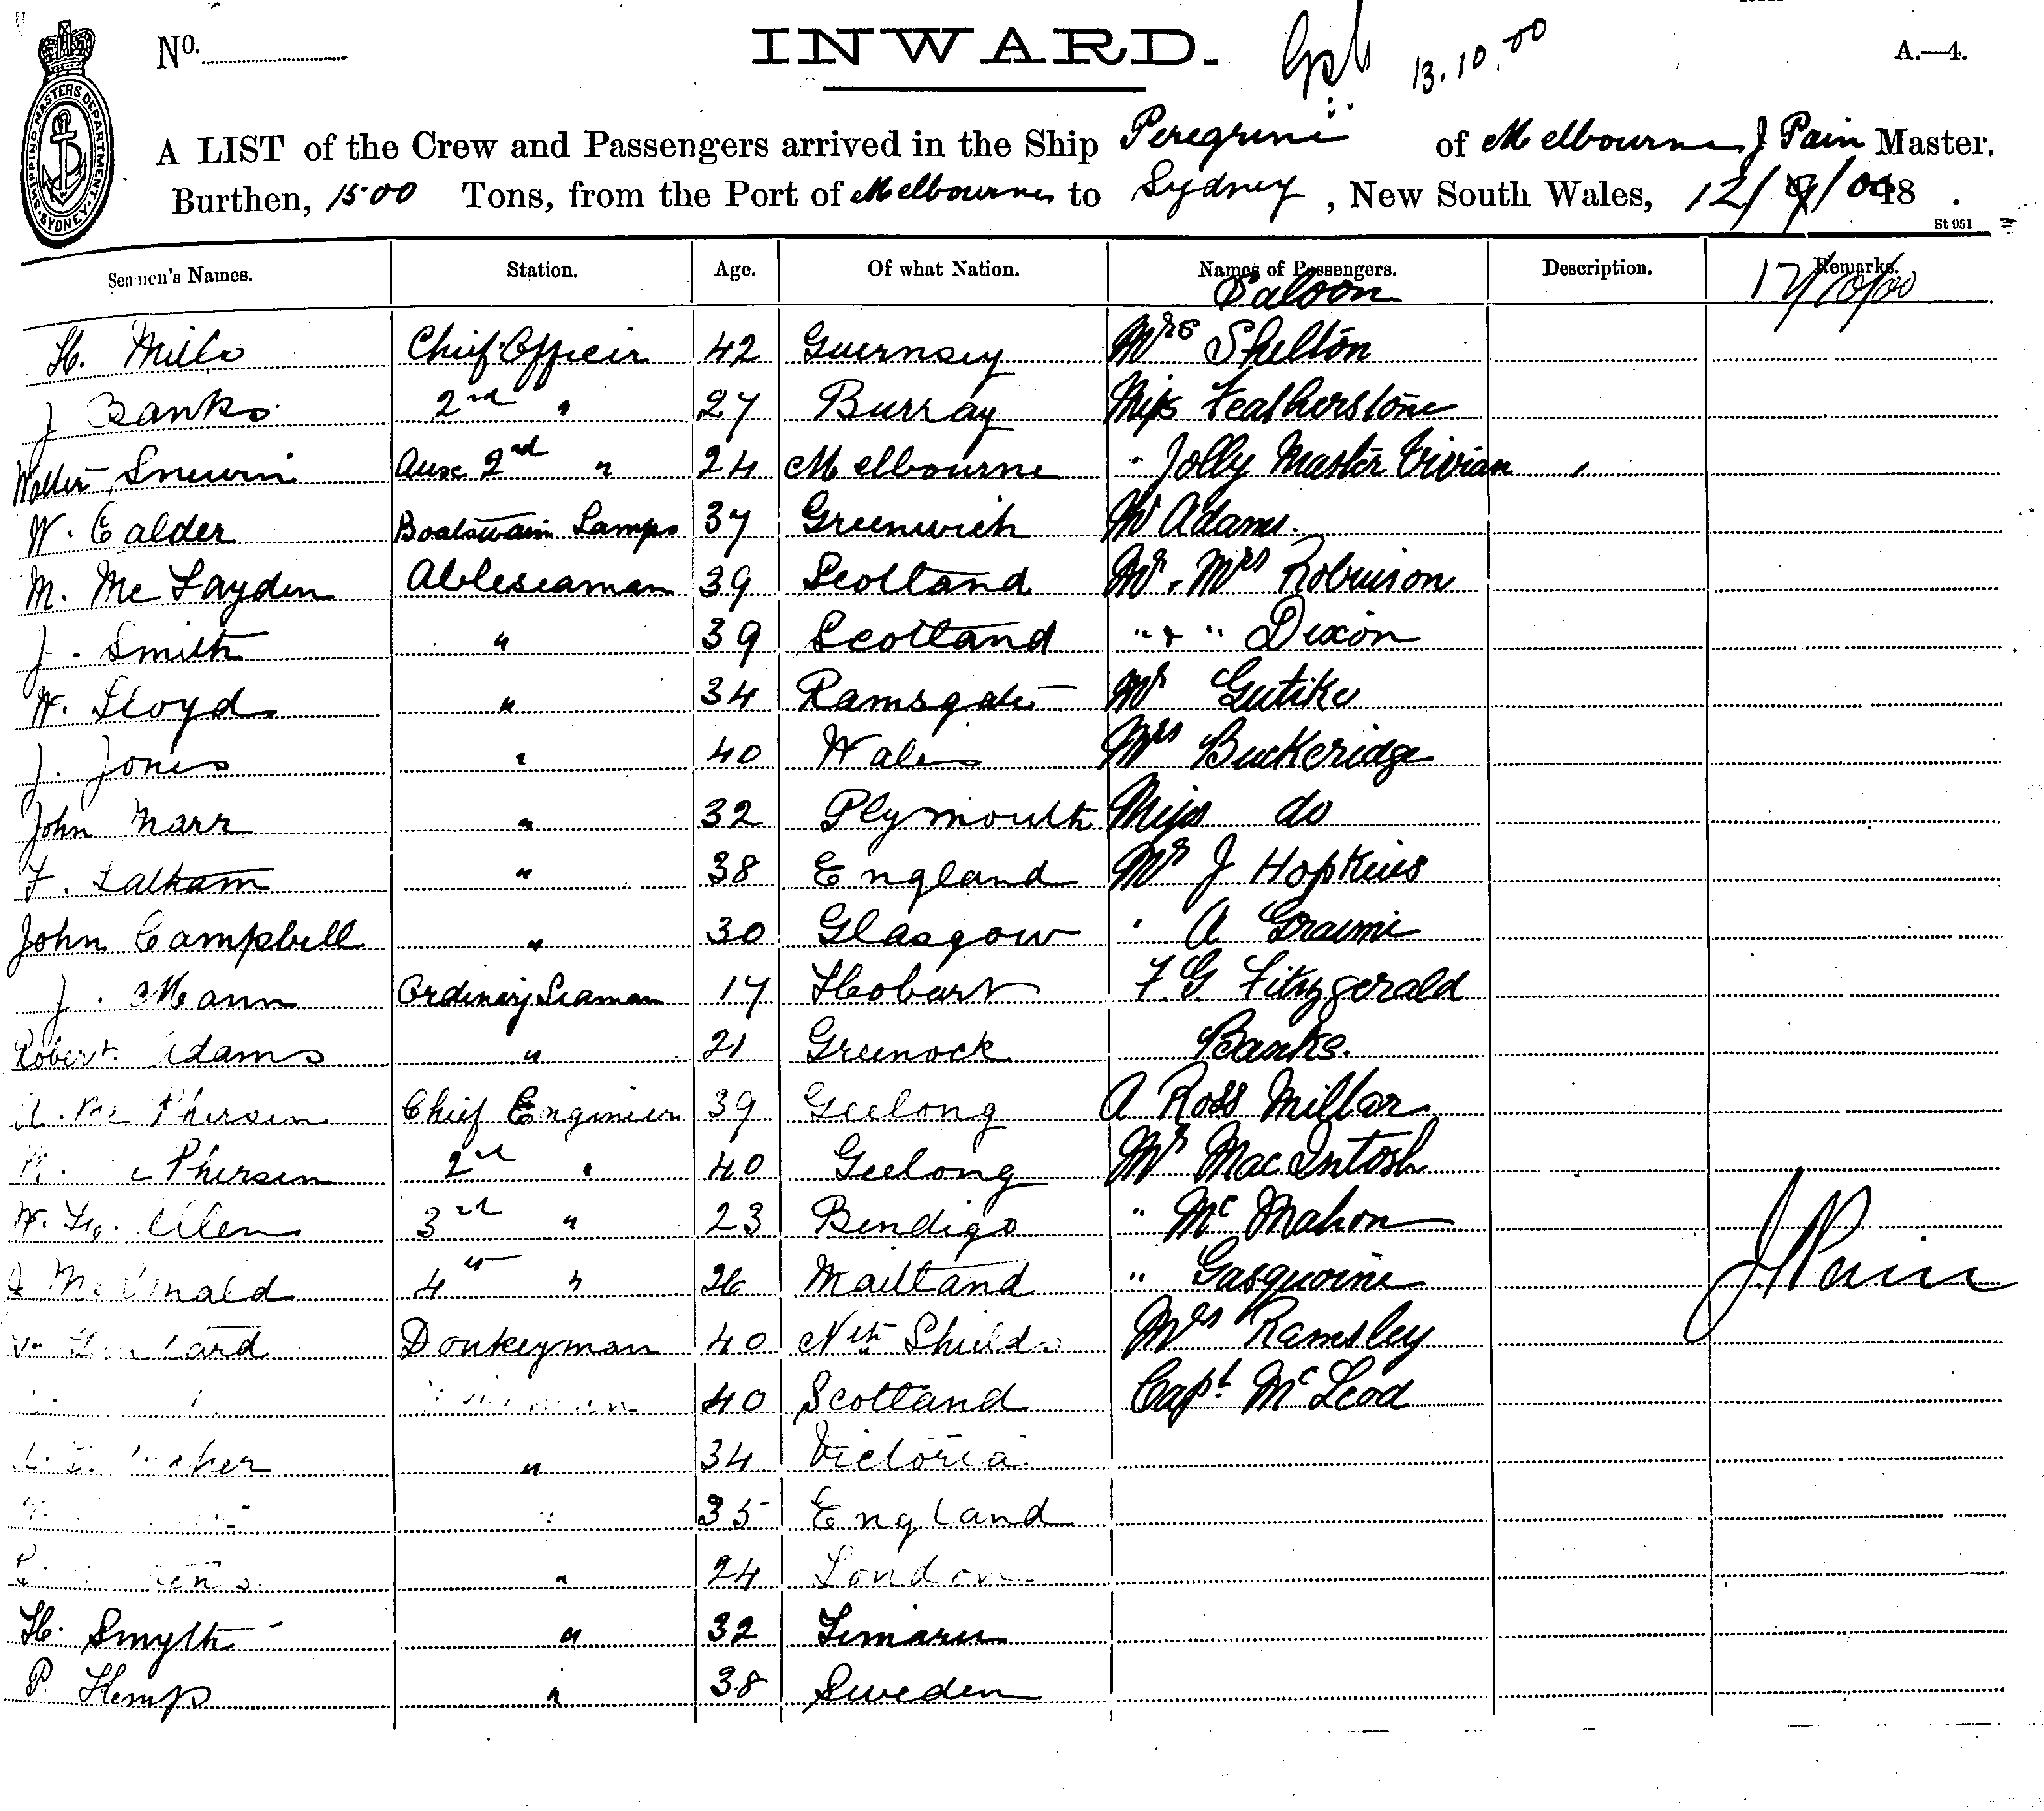 No. INWARD. 13.10.00 A.—4.
SHIPPING MASTERS DEPARTMENT SYDNEY
A LIST of the Crew and Passengers arrived in the Ship Peregrine of Melbourne J Pain Master.
Burthen, 1500 Tons, from the Port of Melbourne to Sydney, New South Wales, 12/9/00 18 .
St 951
Seamen's Names. Station. Age. Of what Nation. Names of Passengers. Description. Remarks.
Saloon 12/10/00
H. Mills Chief Officer 42 Guernsey Mrs Shelton
J Banks 2nd " 27 Burray Miss Featherstone
Walter Snewin Aux 2nd " 24 Melbourne " Jolly Master Vivian
W. Calder Boatswain Lamps 37 Greenwich Mr Adams.
M. Mc Fayden Ableseaman 39 Scotland Mr. Mrs Robinson
J. Smith " 39 Scotland " + " Dixon
W. Lloyd " 34 Ramsgate Mr Gutike
J. Jones " 40 Wales Mrs Buckeridge
John Marr " 32 Plymouth Miss do
F. Latham " 38 England Mr J Hopkins
John Campbell " 30 Glasgow " A Graeme
J. Mann Ordinary Seaman 17 Hobart F. G. Fitzgerald
Robert Adams " 21 Greenock Banks.
A. Mc Phersen Chief Engineer 39 Geelong A Ross Millar
Phersen 2nd " 40 Geelong Mr MacIntosh
W. Allen 3rd " 23 Bendigo " McMahon
4th " 26 Maitland " Gasquoine
J Pain
Donkeyman 40 Nth Shields Mrs Ramsley
40 Scotland Capt McLeod
" 34 Victoria
" 35 England
" 24 London
H. Smyth " 32 Timaru
P. Kemp " 38 Sweden